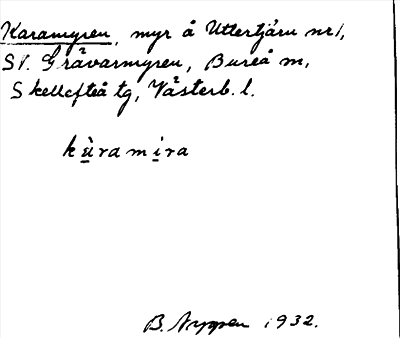 Karamyren, myr å Uttertjärn nr 1,
St. Gråvarmyren, Bureå sn,
Skellefteå tg, Västerb. l.
kùramira
B. Nygren 1932.